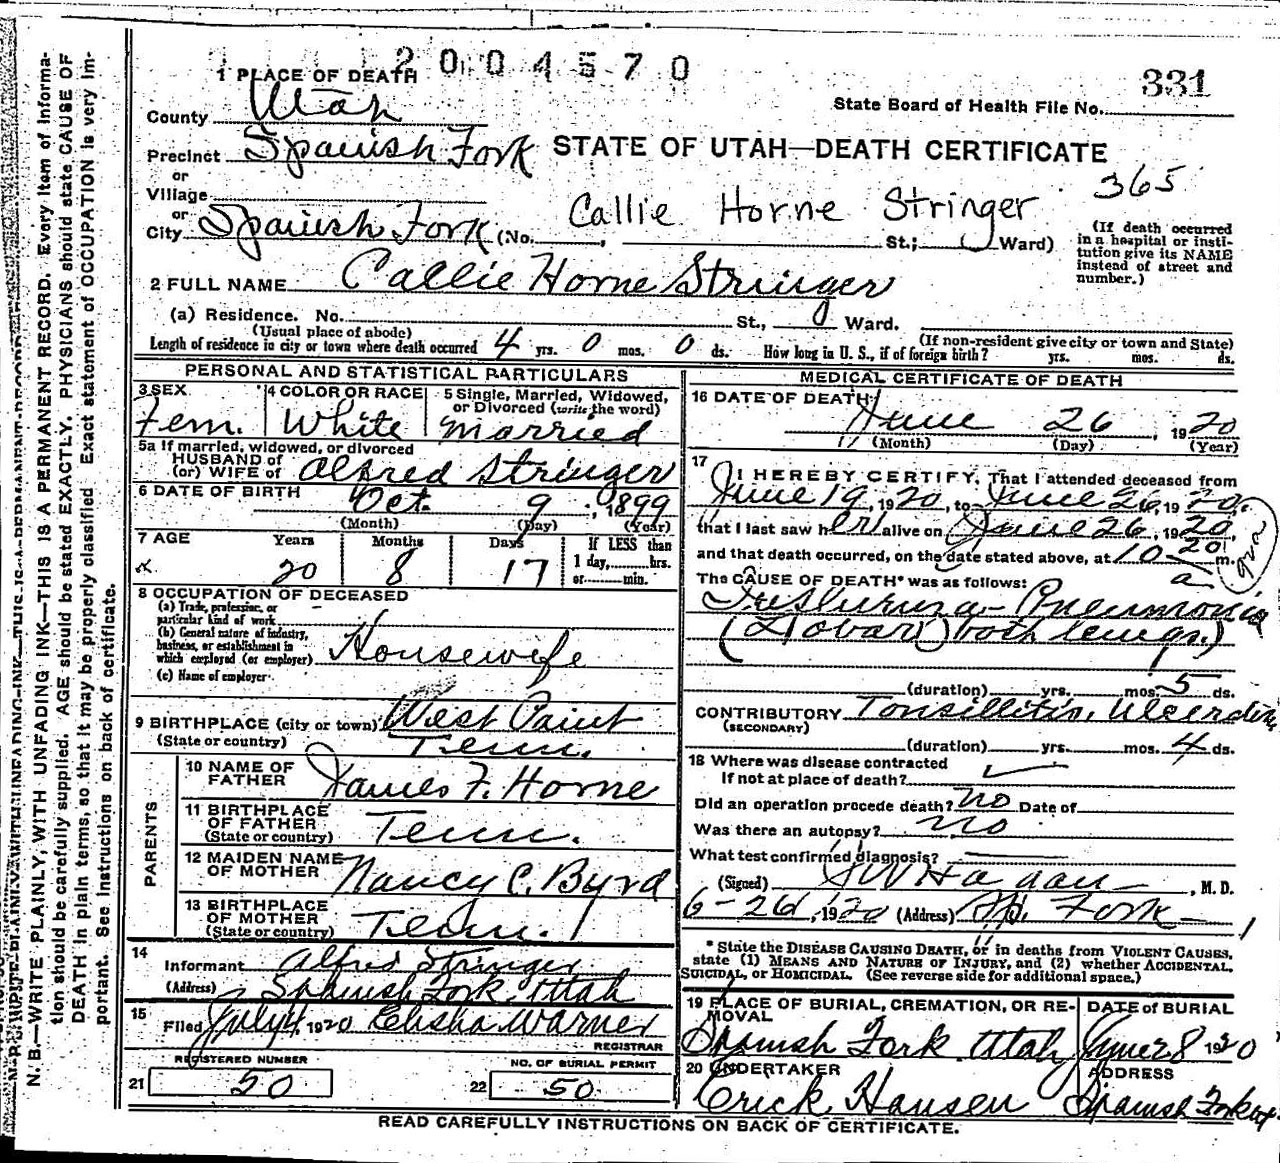 2004570
331
1 PLACE OF DEATH
State Board of Health File No.
County Utah
Precinct Spanish Fork
STATE OF UTAH—DEATH CERTIFICATE
or
Village
365
or
Callie Horne Stringer
City Spanish Fork (No. , St.; Ward)
(If death occurred in a hospital or insti-
tution give its NAME
instead of street and
number.)
2 FULL NAME Callie Horne Stringer
(a) Residence. No. St., Ward.
(Usual place of abode) (If non-resident give city or town and State)
Length of residence in city or town where death occurred 4 yrs. 0 mos. 0 ds. How long in U. S., if of foreign birth? yrs. mos. ds.
PERSONAL AND STATISTICAL PARTICULARS
3 SEX Fem.
4 COLOR OR RACE White
5 Single, Married, Widowed,
or Divorced (write the word)
Married
5a If married, widowed, or divorced
HUSBAND of
(or) WIFE of Alfred Stringer
6 DATE OF BIRTH Oct. 9, 1899
(Month) (Day) (Year)
7 AGE Years Months Days If LESS than
1 day, hrs.
or min.
20 8 17
8 OCCUPATION OF DECEASED
(a) Trade, profession, or
particular kind of work
(b) General nature of industry,
business, or establishment in
which employed (or employer) Housewife
(c) Name of employer
9 BIRTHPLACE (city or town) West Point
(State or country) Tenn.
PARENTS
10 NAME OF
FATHER James F. Horne
11 BIRTHPLACE
OF FATHER
(State or country) Tenn.
12 MAIDEN NAME
OF MOTHER Nancy C. Byrd
13 BIRTHPLACE
OF MOTHER
(State or country) Tenn.
14
Informant Alfred Stringer
(Address) Spanish Fork Utah
15
Filed July 4 1920 Elisha Warner
REGISTRAR
REGISTERED NUMBER
21 50
NO. OF BURIAL PERMIT
22 50
MEDICAL CERTIFICATE OF DEATH
16 DATE OF DEATH
June 26, 1920
(Month) (Day) (Year)
17
I HEREBY CERTIFY, That I attended deceased from
June 19, 1920, to June 26, 1920,
that I last saw her alive on June 26, 1920,
and that death occurred, on the date stated above, at 10 20 a m.
The CAUSE OF DEATH* was as follows:
Influenza - Pneumonia
(Lobar) both lungs.)
(duration) yrs. mos. 5 ds.
CONTRIBUTORY Tonsillitis,
(SECONDARY)
(duration) yrs. mos. 4 ds.
18 Where was disease contracted
If not at place of death?
Did an operation precede death? no Date of
Was there an autopsy? no
What test confirmed diagnosis?
(Signed) Hagan, M.D.
6-26, 1920 (Address) Sp. Fork
* State the DISEASE CAUSING DEATH, or in deaths from VIOLENT CAUSES,
state (1) MEANS AND NATURE OF INJURY, and (2) whether ACCIDENTAL,
SUICIDAL, or HOMICIDAL. (See reverse side for additional space.)
19 PLACE OF BURIAL, CREMATION, OR RE-
MOVAL
Spanish Fork Utah
DATE of BURIAL
June 28 1920
20 UNDERTAKER
Erick Hansen
ADDRESS
Spanish Fork Ut
READ CAREFULLY INSTRUCTIONS ON BACK OF CERTIFICATE.
N. B.—WRITE PLAINLY, WITH UNFADING INK—THIS IS A PERMANENT RECORD. Every item of informa-
tion should be carefully supplied. AGE should be stated EXACTLY. PHYSICIANS should state CAUSE OF
DEATH in plain terms, so that it may be properly classified. Exact statement of OCCUPATION is very im-
portant. See instructions on back of certificate.